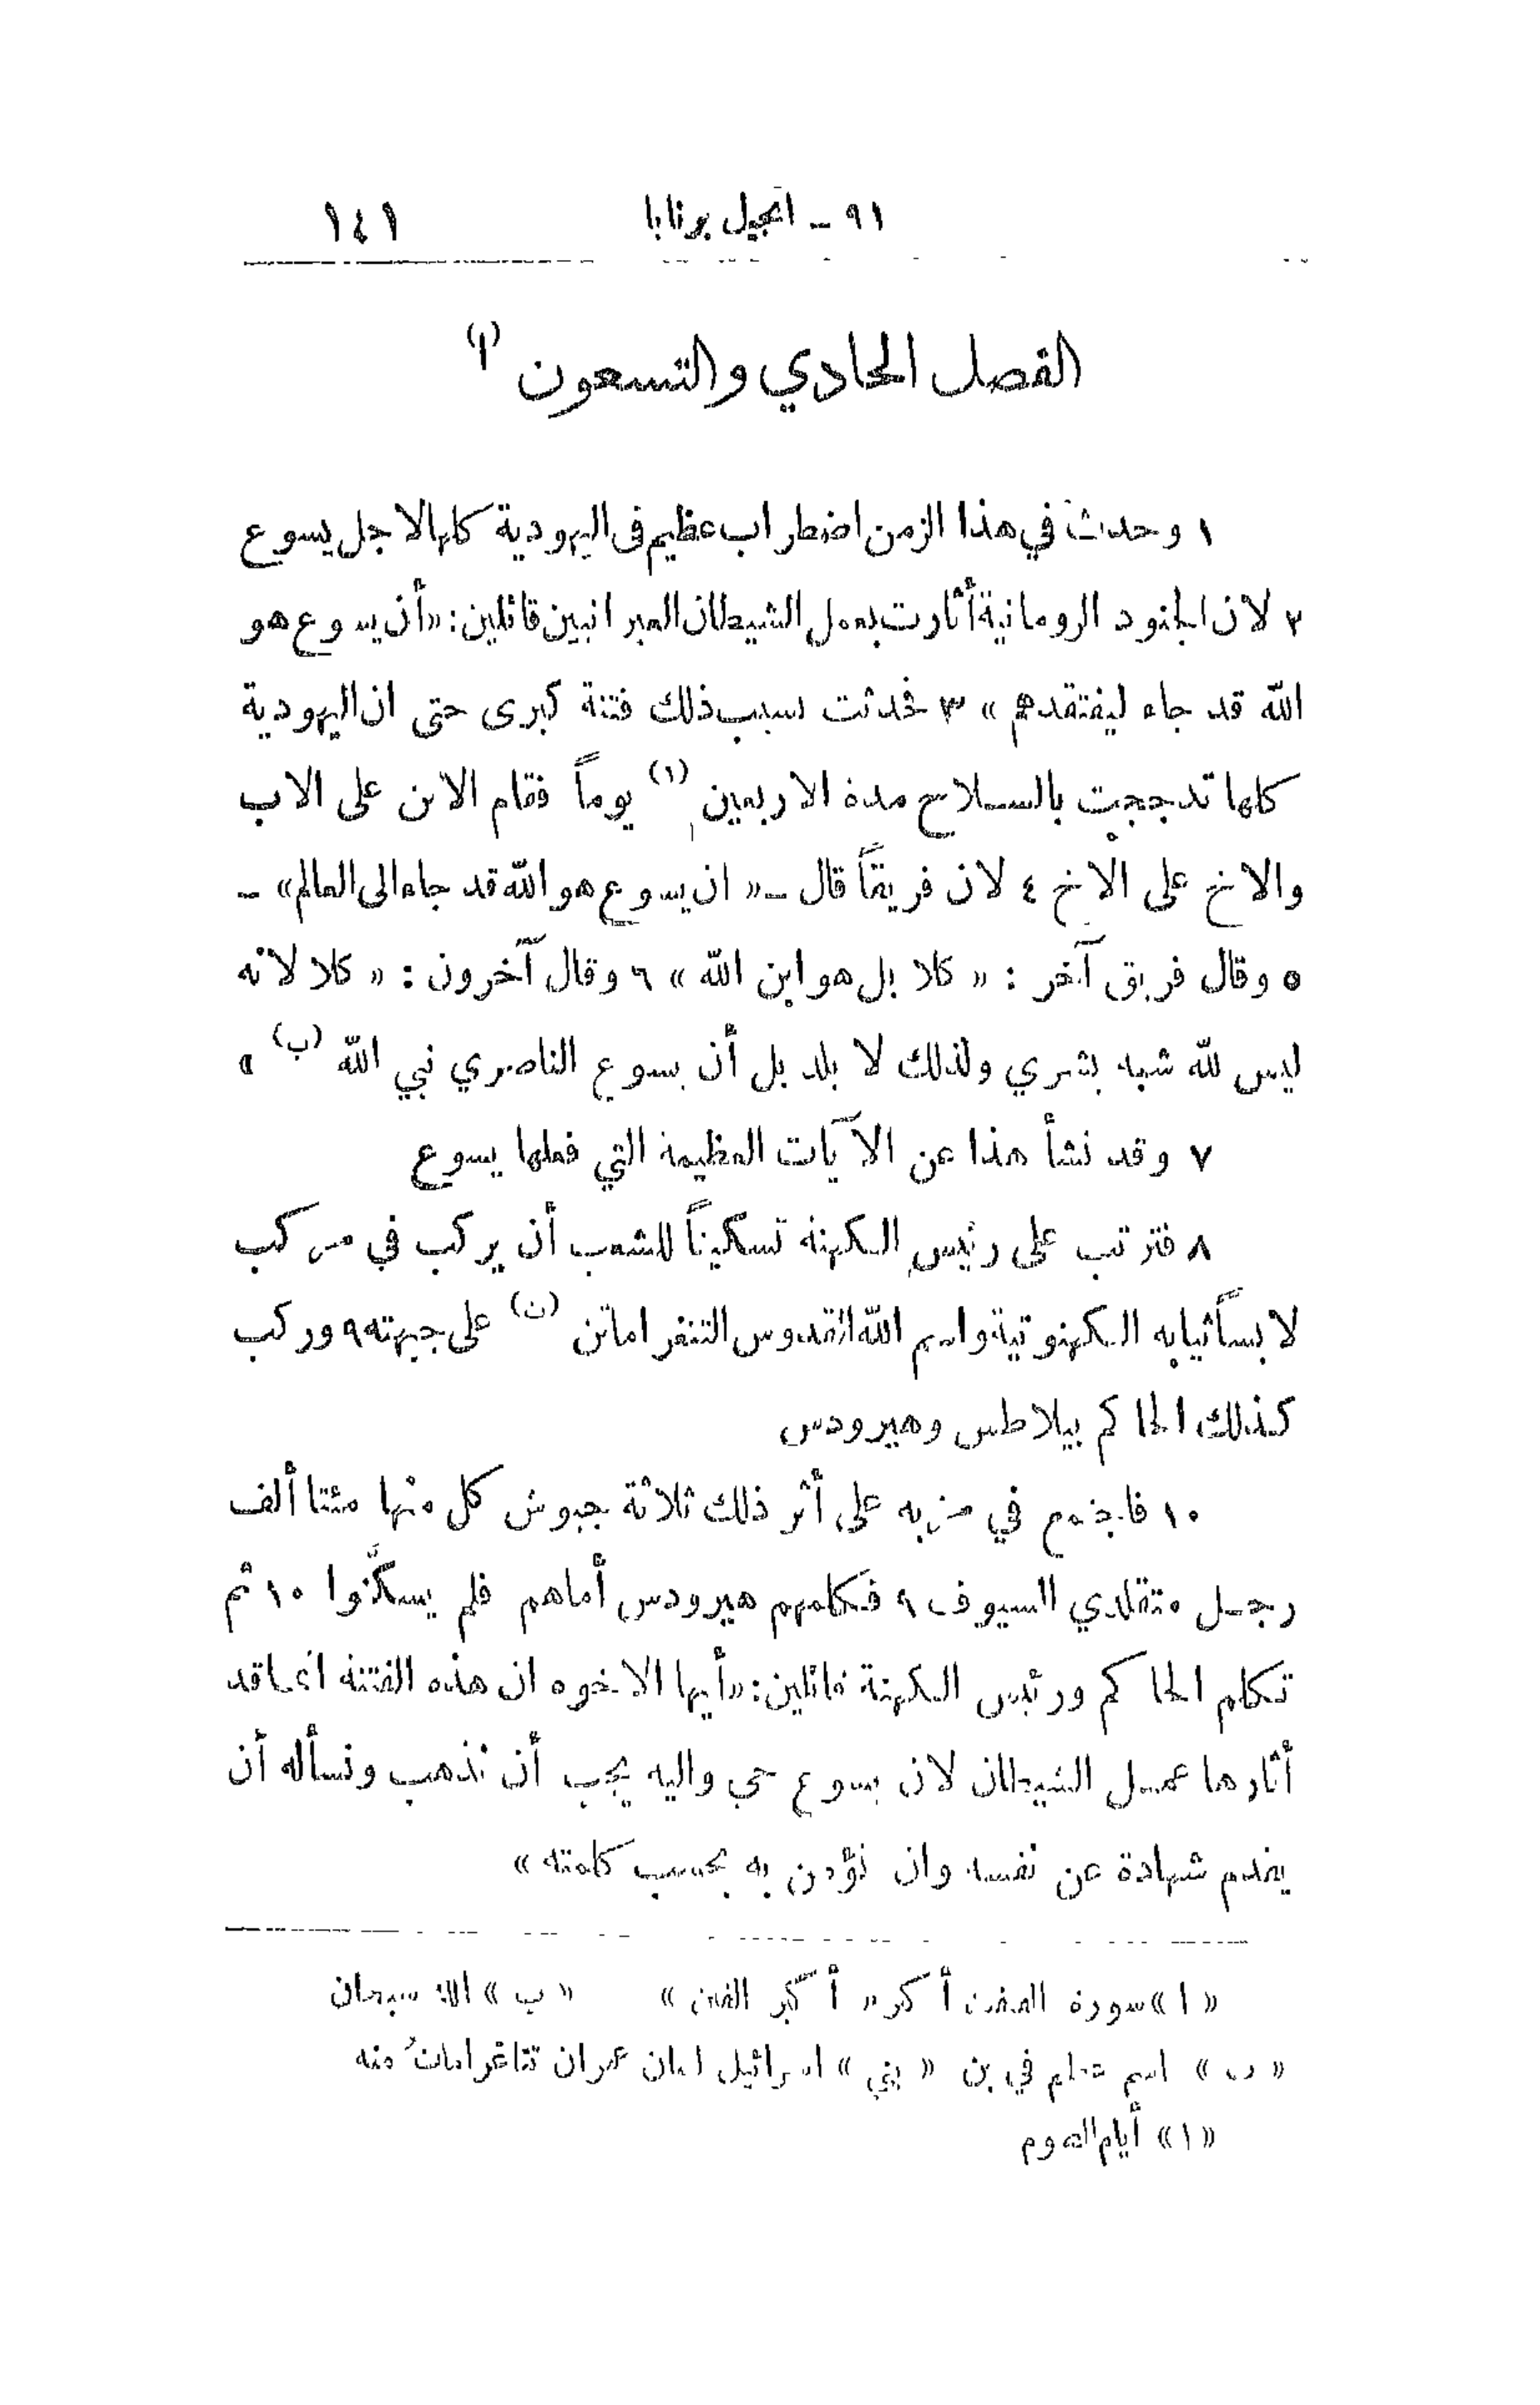 ٩١ – انجيل برنابا ١٤١
الفصل الحادي والتسعون (ا)
١ وحدث في هذا الزمن اضطراب عظيم في اليهودية كلها لاجل يسوع
٢ لان الجنود الرومانية أثارت بعمل الشيطان العبرانيين قائلين: «أن يسوع هو
الله قد جاء ليفتقدهم» ٣ فحدثت بسبب ذلك فتنة كبرى حتى ان اليهودية
كلها تدججت بالسلاح مدة الاربعين (١) يوماً فقام الابن على الاب
والاخ على الاخ ٤ لان فريقاً قال – « ان يسوع هو الله قد جاء الى العالم» –
٥ وقال فريق آخر : « كلا بل هو ابن الله » ٦ وقال آخرون : « كلا لانه
ليس لله شبه بشري ولذلك لا يلد بل أن يسوع الناصري نبي الله (ب) »
٧ وقد نشأ هذا عن الآيات العظيمة التي فعلها يسوع
٨ فترتب على رئيس الكهنة تسكيناً للشعب أن يركب في مركب
لابساً ثيابه الكهنوتية واسم الله القدوس التتغراماتن (ت) على جبهته ٩ وركب
كذلك الحاكم بيلاطس وهيرودس
١٠ فاجتمع في مزبه على أثر ذلك ثلاثة جيوش كل منها مئتا ألف
رجل متقلدي السيوف ٩ فكلمهم هيرودس أماهم فلم يسكّنوا ١٠ ثم
تكلم الحاكم ورئيس الكهنة قائلين: «أيها الاخوه ان هذه الفتنة انما قد
أثارها عمل الشيطان لان يسوع حي واليه يجب أن نذهب ونسأله أن
يقدم شهادة عن نفسه وان نؤمن به بحسب كلمته »
« ا » سورة أكبر « أكبر الفتن » « ب » الله سبحان
اسم في بن « بني » اسرائيل لسان عمران تتاغرامات منه
« ١ » أيام الصوم